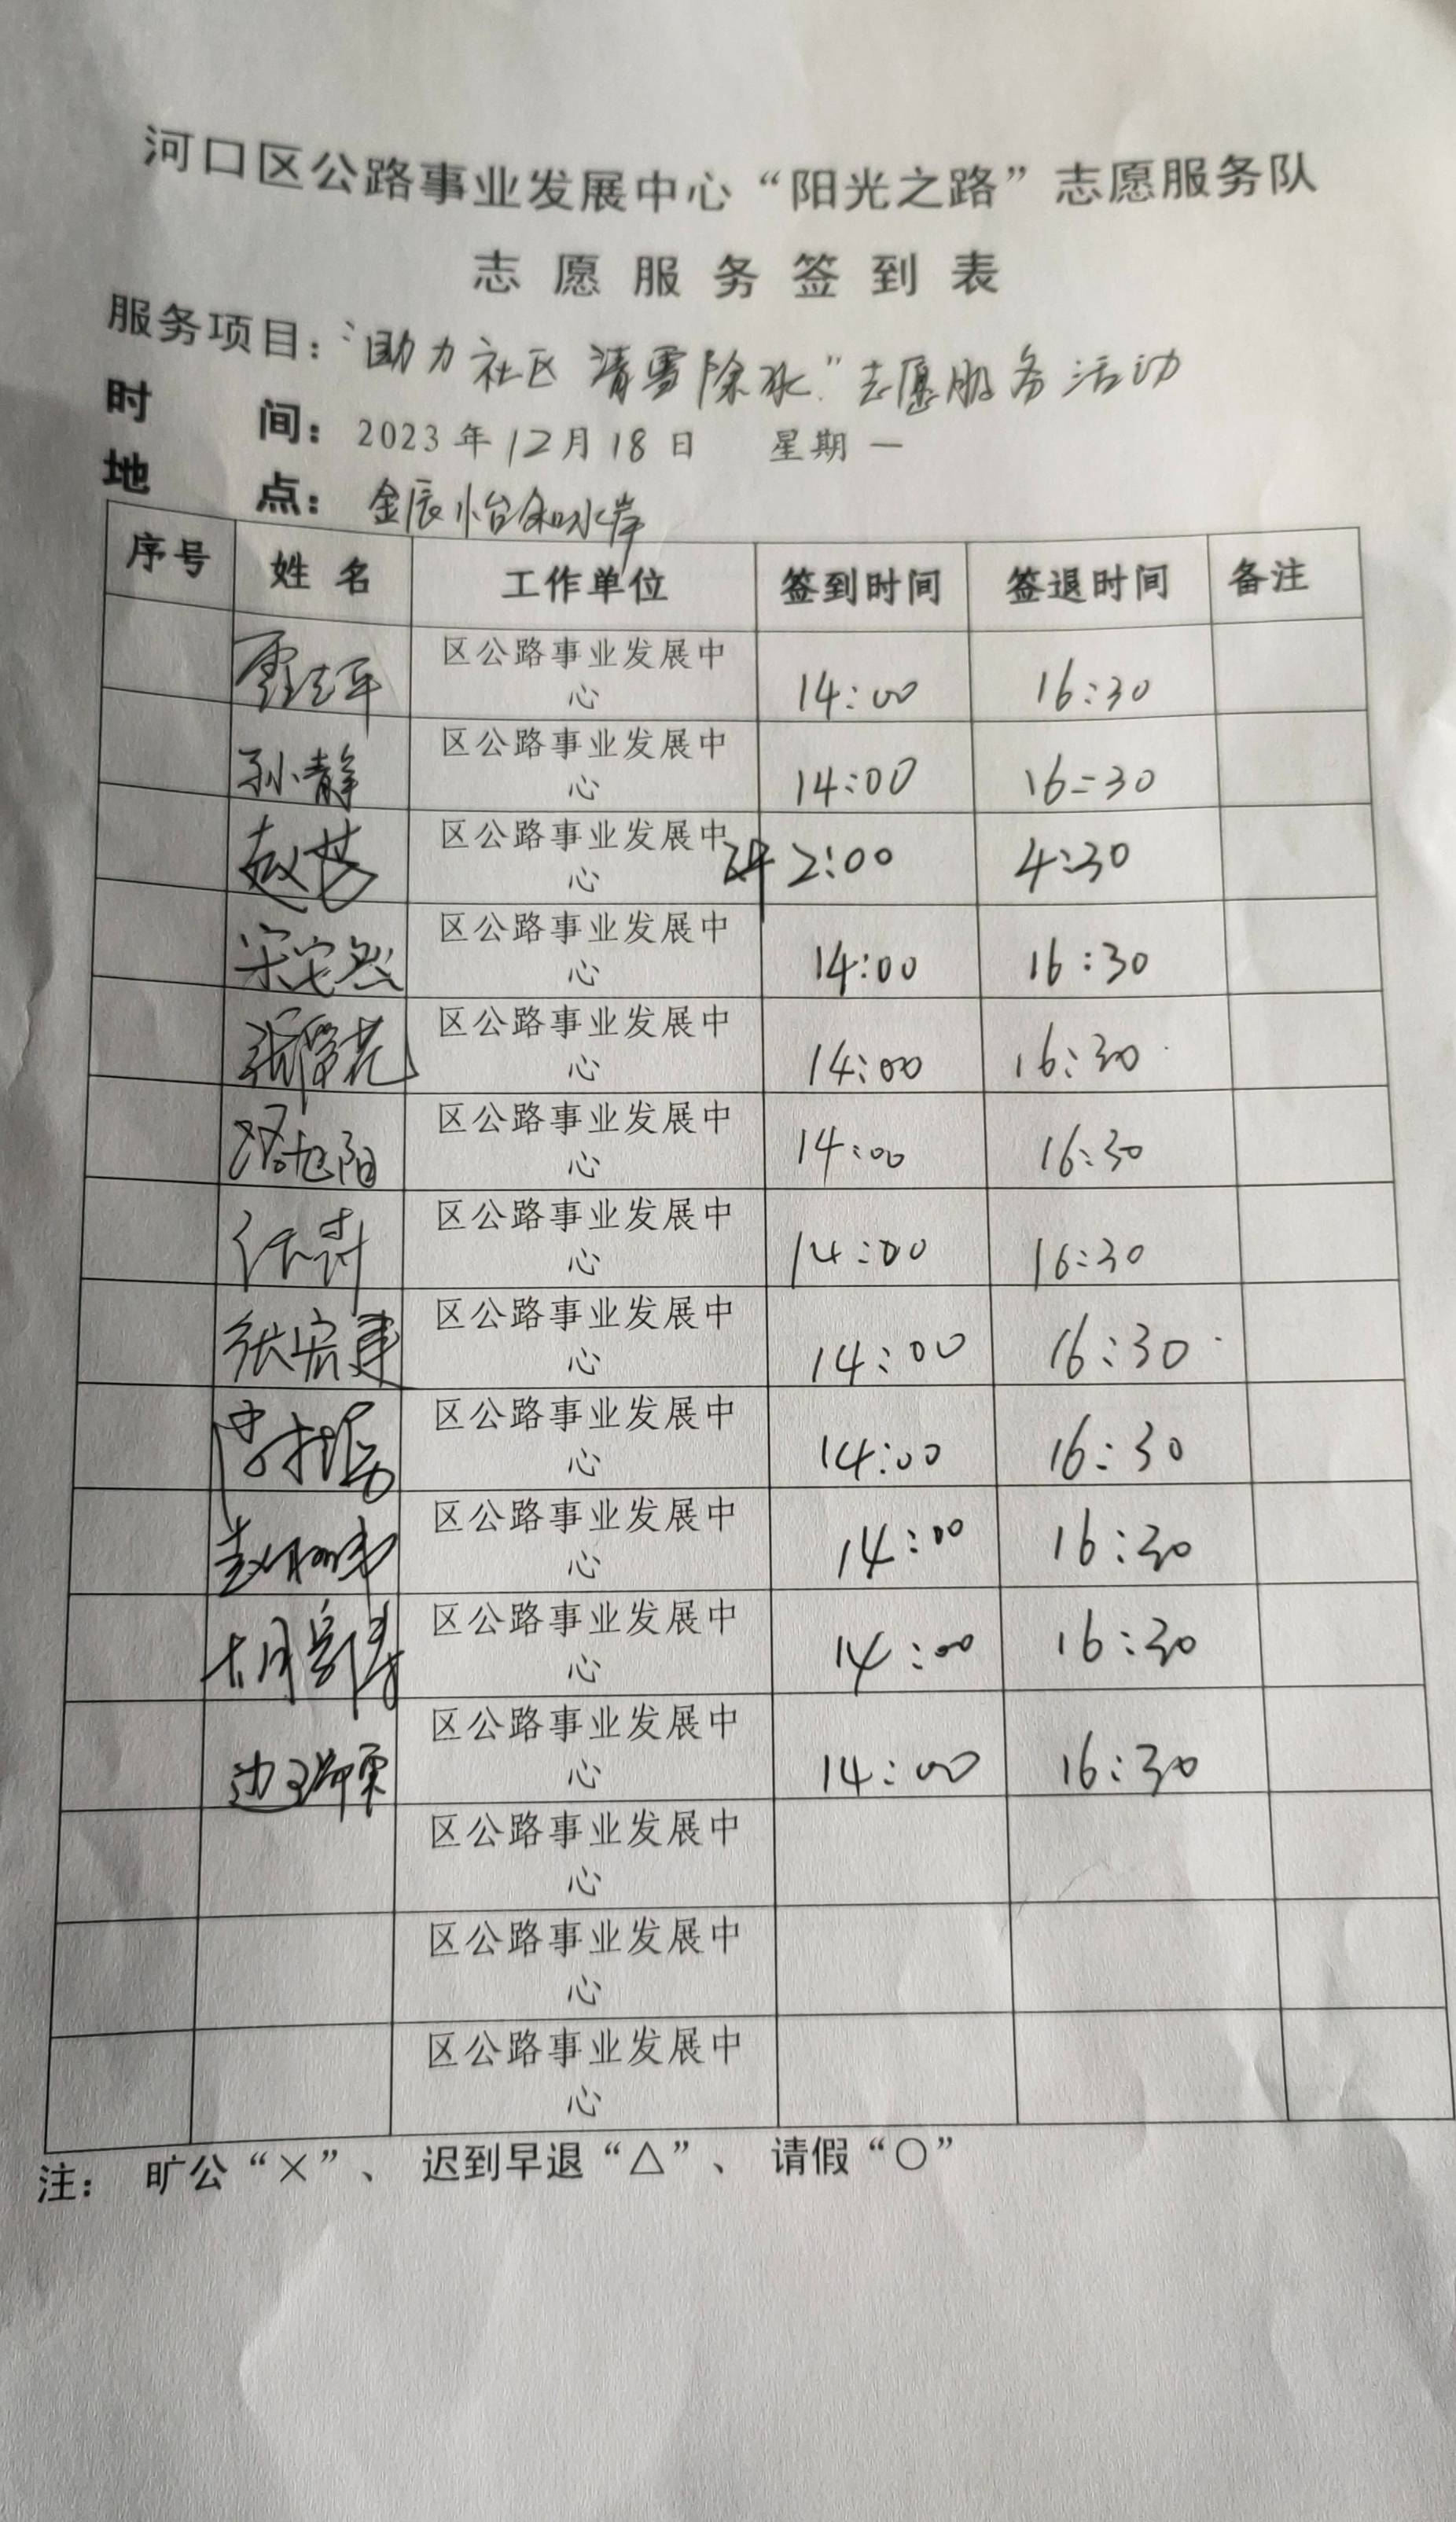 河口区公路事业发展中心“阳光之路”志愿服务队
志愿服务签到表
服务项目：“助力社区 清雪除冰”志愿服务活动
时 间：2023年12月18日 星期一
地 点：金辰怡和水岸
序号 姓名 工作单位 签到时间 签退时间 备注
区公路事业发展中
心 14:00 16:30
孙静 区公路事业发展中
心 14:00 16:30
区公路事业发展中
心 2:00 4:30
区公路事业发展中
心 14:00 16:30
张学花 区公路事业发展中
心 14:00 16:30
路旭阳 区公路事业发展中
心 14:00 16:30
区公路事业发展中
心 14:00 16:30
张宏建 区公路事业发展中
心 14:00 16:30
区公路事业发展中
心 14:00 16:30
区公路事业发展中
心 14:00 16:30
区公路事业发展中
心 14:00 16:30
区公路事业发展中
心 14:00 16:30
区公路事业发展中
心
区公路事业发展中
心
区公路事业发展中
心
注： 旷公“×”、 迟到早退“△”、 请假“○”